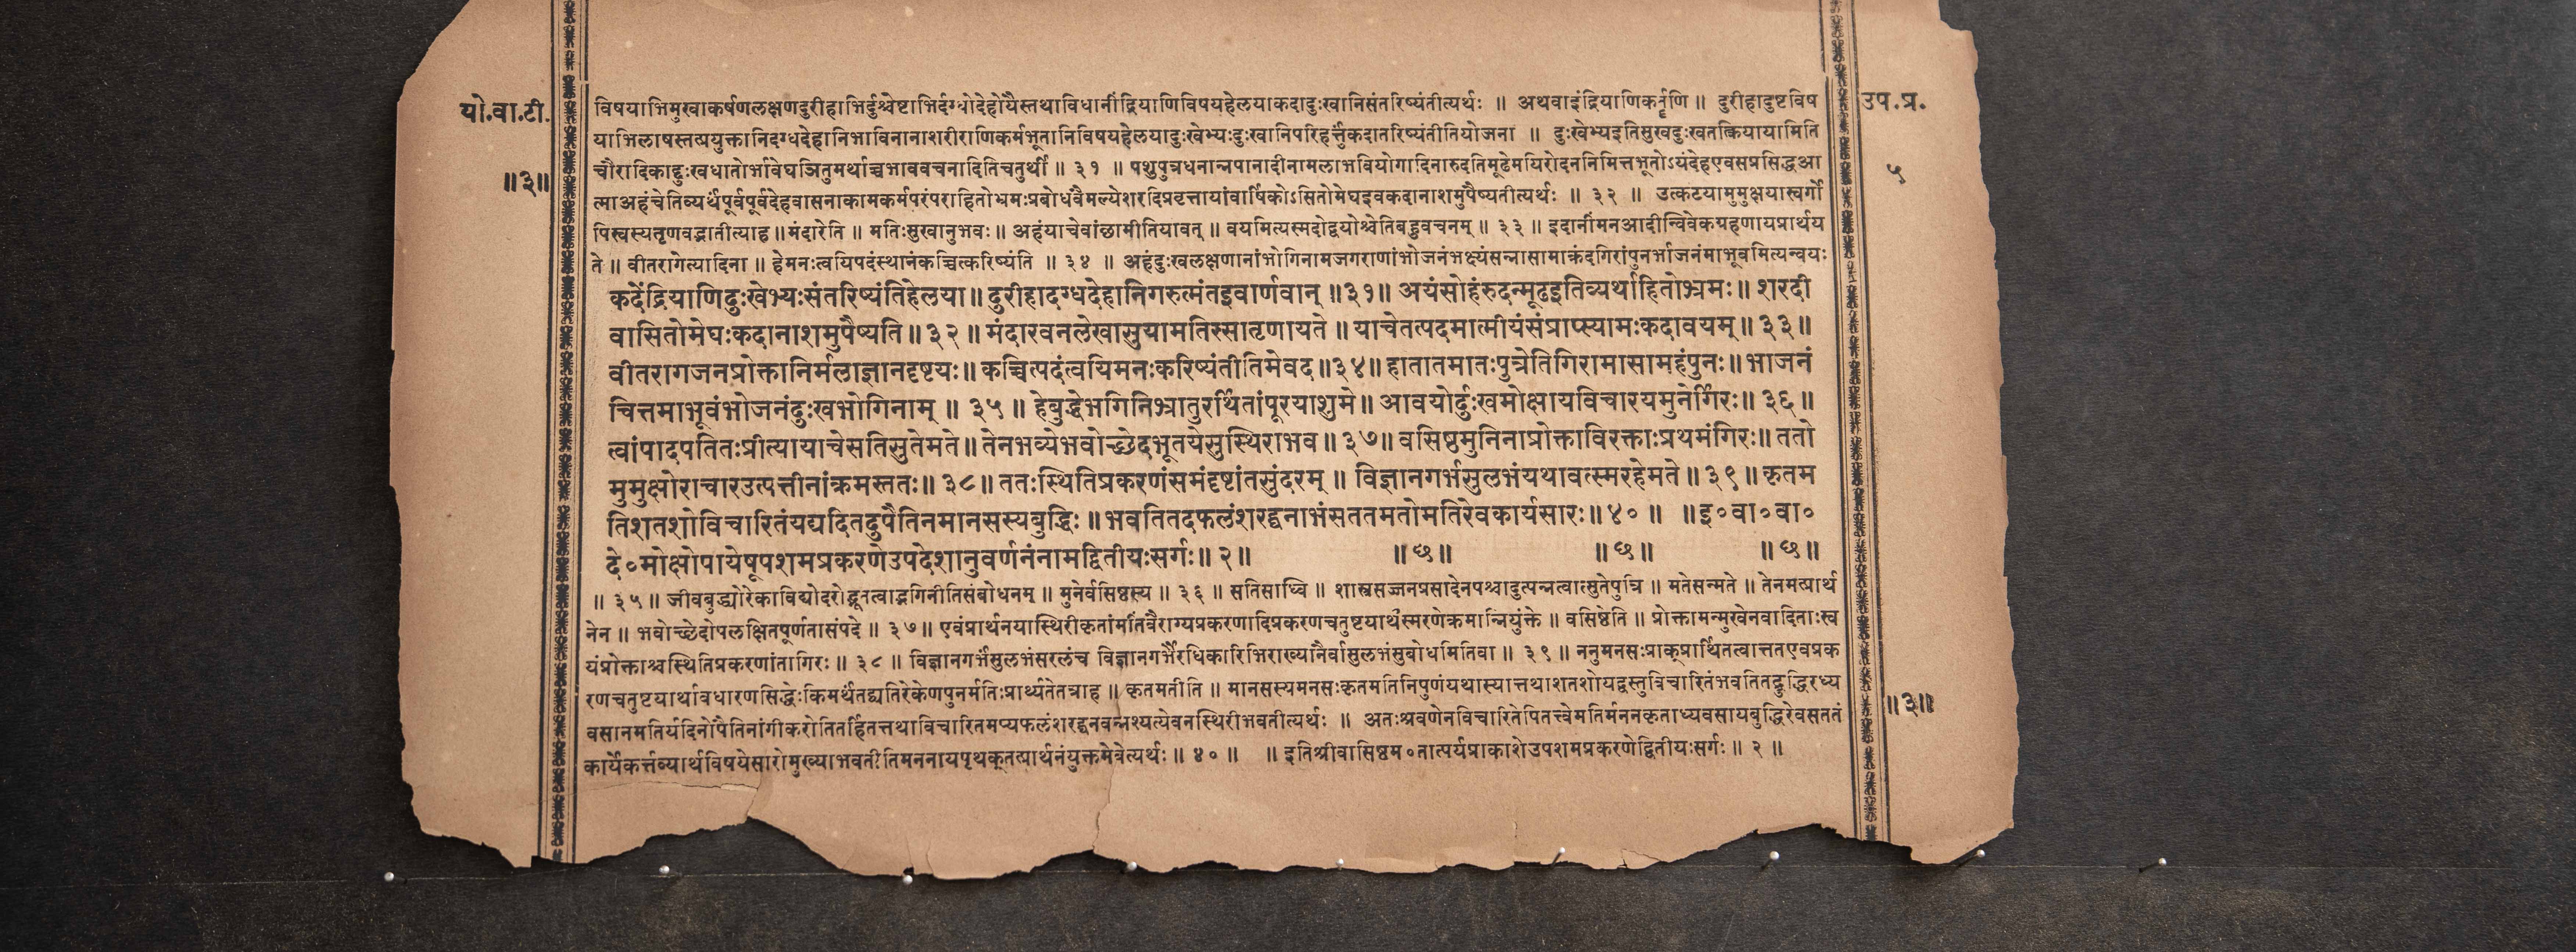 यो.वा.टी.
॥३॥
उप.प्र.
५
विषयाभिमुखाकर्षणलक्षणदुरीहाभिर्दुश्चेष्टाभिर्दग्धोदेहोयैस्तथाविधानींद्रियाणिविषयहेलयाकदादुःखानिसंतरिष्यंतीत्यर्थः ॥ अथवाइंद्रियाणिकर्तॄणि ॥ दुरीहादुष्टविष
याभिलाषस्तत्प्रयुक्तानिदग्धदेहानिभाविनानाशरीराणिकर्मभूतानिविषयहेलयादुःखेभ्यःदुःखानिपरिहर्त्तुंकदातरिष्यंतीतियोजना ॥ दुःखेभ्यइतिसुखदुःखतत्क्रियायामिति
चौरादिकाद्दुःखधातोर्भावेघञितुमर्थाच्चभाववचनादितिचतुर्थी ॥ ३१ ॥ पशुपुत्रधनान्नपानादीनामलाभवियोगादिनारुदतिमूढेमयिरोदननिमित्तभूतोऽयंदेहएवसप्रसिद्धआ
त्माअहंचेतिव्यर्थंपूर्वपूर्वदेहवासनाकामकर्मपरंपराहितोभ्रमःप्रबोधवैमल्येशरदिप्रवृत्तायांवार्षिकोऽसितोमेघइवकदानाशमुपैष्यतीत्यर्थः ॥ ३२ ॥ उत्कटयामुमुक्षयास्वर्गो
पिस्वस्यतृणवद्भातीत्याह ॥ मंदारेति ॥ मतिःसुखानुभवः ॥ अहंयाचेवांछामीतियावत् ॥ वयमित्यस्मदोद्वयोश्चेतिबहुवचनम् ॥ ३३ ॥ इदानींमनआदीन्विवेकग्रहणायप्रार्थय
ते ॥ वीतरागेत्यादिना ॥ हेमनःत्वयिपदंस्थानंकच्चित्करिष्यंति ॥ ३४ ॥ अहंदुःखलक्षणानांभोगिनामजगराणांभोजनंभक्ष्यंसन्नासामाक्रंदगिरांपुनर्भाजनंमाभूवमित्यन्वयः
कदेंद्रियाणिदुःखेभ्यःसंतरिष्यंतिहेलया ॥ दुरीहादग्धदेहानिगरुत्मंतइवार्णवान् ॥३१॥ अयंसोहंरुदन्मूढइतिव्यर्थाहितोभ्रमः ॥ शरदी
वासितोमेघःकदानाशमुपैष्यति ॥ ३२ ॥ मंदारवनलेखासुयामतिस्सातृणायते ॥ याचेतत्पदमात्मीयंसंप्राप्स्यामःकदावयम् ॥ ३३॥
वीतरागजनप्रोक्तानिर्मलाज्ञानदृष्टयः ॥ कच्चित्पदंत्वयिमनःकरिष्यंतीतिमेवद ॥३४॥ हातातमातःपुत्रेतिगिरामासामहंपुनः ॥ भाजनं
चित्तमाभूवंभोजनंदुःखभोगिनाम् ॥ ३५ ॥ हेबुद्धेभगिनिभ्रातुरर्थितांपूरयाशुमे ॥ आवयोर्दुःखमोक्षायविचारयमुनेर्गिरः ॥ ३६ ॥
त्वांपादपतितःप्रीत्यायाचेसतिसुतेमते ॥ तेनभव्येभवोच्छेदभूतयेसुस्थिराभव ॥ ३७ ॥ वसिष्ठमुनिनाप्रोक्ताविरक्ताःप्रथमंगिरः ॥ ततो
मुमुक्षोराचारउत्पत्तीनांक्रमस्ततः ॥ ३८ ॥ ततःस्थितिप्रकरणंसमंदृष्टांतसुंदरम् ॥ विज्ञानगर्भसुलभंयथावत्स्मरहेमते ॥ ३९ ॥ कृतम
तिशतशोविचारितंयद्यदितदुपैतिनमानसस्यबुद्धिः ॥ भवतितदफलंशरद्घनाभंसततमतोमतिरेवकार्यसारः ॥ ४० ॥ ॥ इ०वा०वा०
दे०मोक्षोपायेषूपशमप्रकरणेउपदेशानुवर्णनंनामद्वितीयःसर्गः ॥ २ ॥ ॥ छ ॥ ॥ छ ॥ ॥ छ ॥
॥ ३५ ॥ जीवबुद्ध्योरेकाविद्योदरोद्भूतत्वाद्भगिनीतिसंबोधनम् ॥ मुनेर्वसिष्ठस्य ॥ ३६ ॥ सतिसाध्वि ॥ शास्त्रसज्जनप्रसादेनपश्चादुत्पन्नत्वात्सुतेपुत्रि ॥ मतेसन्मते ॥ तेनमत्प्रार्थ
नेन ॥ भवोच्छेदोपलक्षितपूर्णतासंपदे ॥ ३७ ॥ एवंप्रार्थनयास्थिरीकृतांमतिंवैराग्यप्रकरणादिप्रकरणचतुष्टयार्थस्मरणेक्रमान्नियुंक्ते ॥ वसिष्ठेति ॥ प्रोक्तामन्मुखेनवादिताःस्व
यंप्रोक्ताश्चस्थितिप्रकरणांतागिरः ॥ ३८ ॥ विज्ञानगर्भंसुलभंसरलंच विज्ञानगर्भैरधिकारिभिराख्यानैर्वासुलभंसुबोधमितिवा ॥ ३९ ॥ ननुमनसःप्राक्प्रार्थितत्वात्ततएवप्रक
रणचतुष्टयार्थावधारणसिद्धेःकिमर्थंतद्व्यतिरेकेणपुनर्मतिःप्रार्थ्यतेतत्राह ॥ कृतमतीति ॥ मानसस्यमनसःकृतमतिनिपुणंयथास्यात्तथाशतशोयद्वस्तुविचारितंभवतितद्बुद्धिरध्य
वसानमतिर्यदिनोपैतिनांगीकरोतितर्हितत्तथाविचारितमप्यफलंशरद्घनवन्नश्यत्येवनस्थिरीभवतीत्यर्थः ॥ अतःश्रवणेनविचारितेपितत्त्वेमतिर्मननकृताध्यवसायबुद्धिरेवसततं
कार्येकर्त्तव्यार्थविषयेसारोमुख्याभवतीतिमननायपृथक्तत्प्रार्थनंयुक्तमेवेत्यर्थः ॥ ४० ॥ ॥ इतिश्रीवासिष्ठम०तात्पर्यप्राकाशेउपशमप्रकरणेद्वितीयःसर्गः ॥ २ ॥
॥३॥